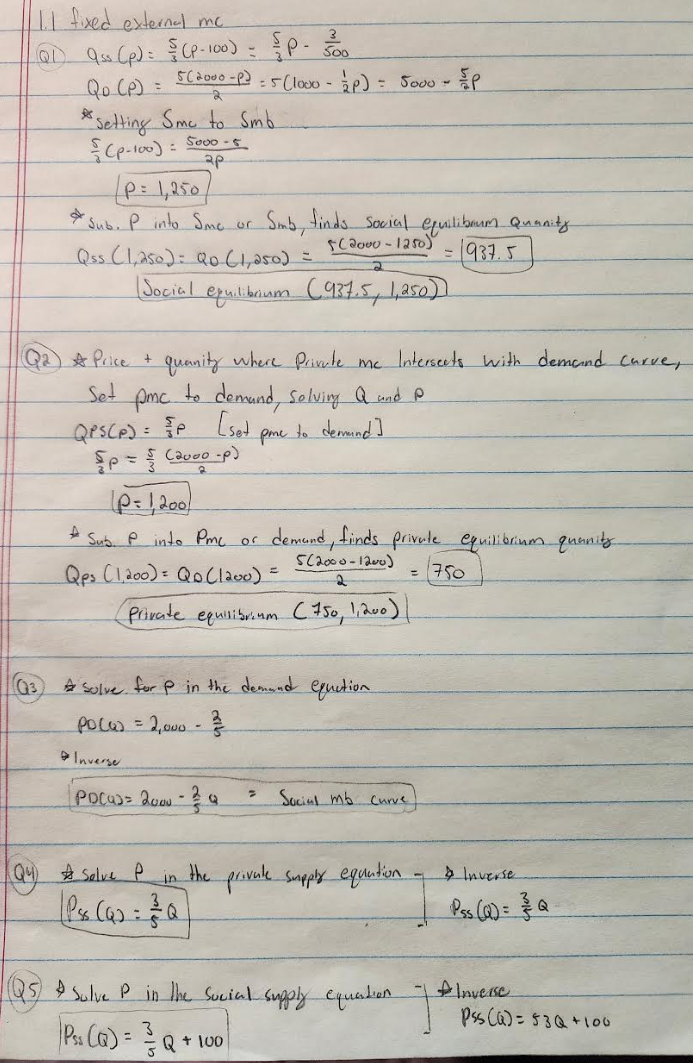 1.1 fixed external mc
Q1 qss(p) = 5/3 (p-100) = 5/3 p - 3/500
QD(p) = 5(2000-p)/2 = 5(1000 - 1/2 p) = 5000 - 5/2 p
* Setting Smc to Smb
5/3 (p-100) = 5000-5/2p
P = 1,250
* Sub. P into Smc or Smb, finds social equilibrium Quanity
Qss (1,250) = QD (1,250) = 5(2000-1250)/2 = 937.5
Social equilibrium (937.5, 1,250)
Q2 * Price + quanity where Private mc Intersects with demand curve,
Set pmc to demand, solving Q and P
QPS(p) = 5/3 P [set pmc to demand]
5/3 p = 5/3 (2000-p)/2
P = 1,200
* Sub. P into Pmc or demand, finds private equilibrium quanity
Qps (1,200) = QD(1200) = 5(2000-1200)/2 = 750
Private equilibrium (750, 1,200)
Q3 * Solve for P in the demand equation
PD(Q) = 2,000 - 2/5
* Inverse
PD(Q) = 2000 - 2/5 Q = Social mb curve
Q4 * Solve P in the private supply equation * Inverse
Pss (Q) = 3/5 Q Pss (Q) = 3/5 Q
Q5 * Solve P in the social supply equation * Inverse
Pss (Q) = 3/5 Q + 100 Pss(Q) = 53Q + 100